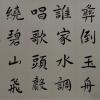 彝倒玉舟
誰家水調
唱歌頭聲
繞碧山飛